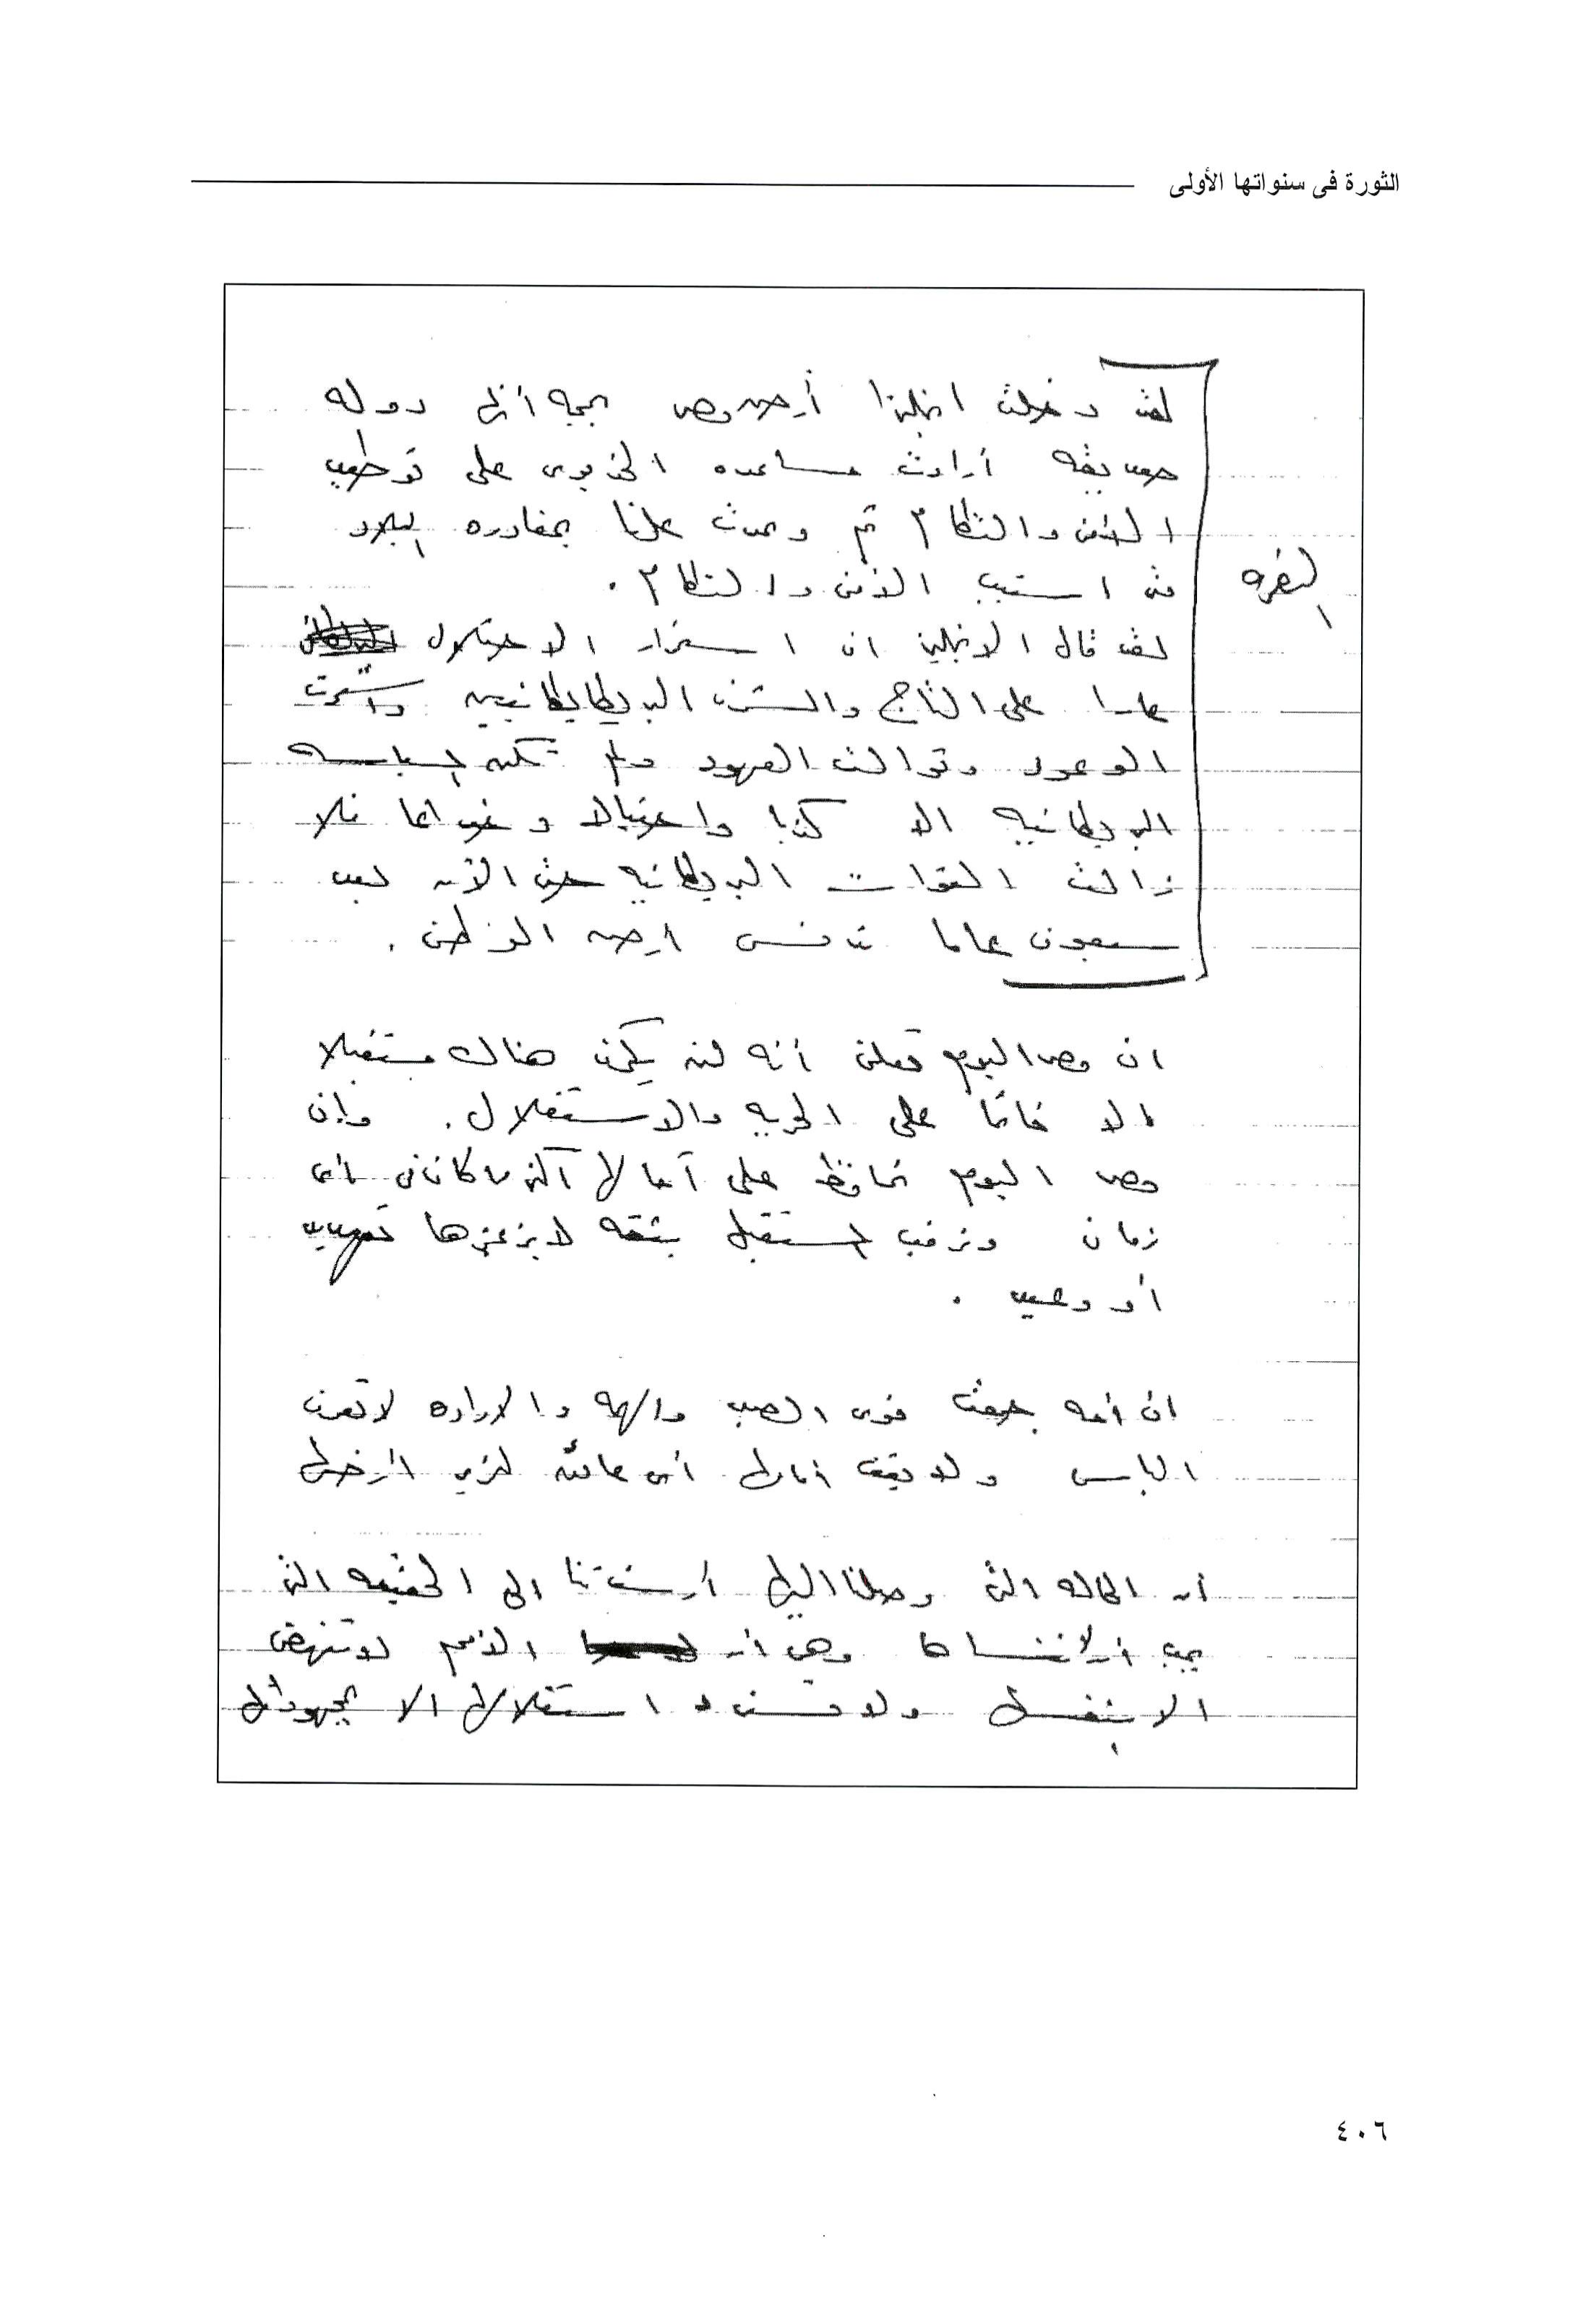 الثورة فى سنواتها الأولى
لقد دخلت انجلترا أرض مصر بحجه أنها دوله
صديقه أرادت مساعده الخديوى على توطيد
الأمن والنظام ثم وعدت علنا بمغادره البلاد
متى استتب الأمن والنظام .
لقد قال الانجليز ان استمرار الاحتلال
عارا على التاج والشرف البريطانيين واستمرت
الوعود وتوالت العهود ولم تكن السياسه
البريطانيه الا كذبا واحتيالا وخداعا فلا
زالت القوات البريطانيه حتى الآن بعد
سبعون عاما تدنس أرض الوطن .
الفقره
١
ان مصر اليوم تعلن أنه لن يكون هناك مستقبلا
الا قائما على الحريه والاستقلال . وإن
مصر اليوم تحافظ على آمالها أكثر ما كانت فى أى
زمان وترقب المستقبل بثقه لا يزعزعها تهديد
أو وعيد .
ان أمه جمعت قوى الصبر والهمه والاراده لا تعرف
اليأس ولا يقف أمامها أى عائق لتحرير أرضها
أن الحاله التى وصلنا اليها أرشدتنا الى الحقيقه التى
يجب أن لا ننساها وهى أن الأمم لا تنهض
الا بنفسها ولا تسترد استقلالها الا بمجهوداتها
٤٠٦